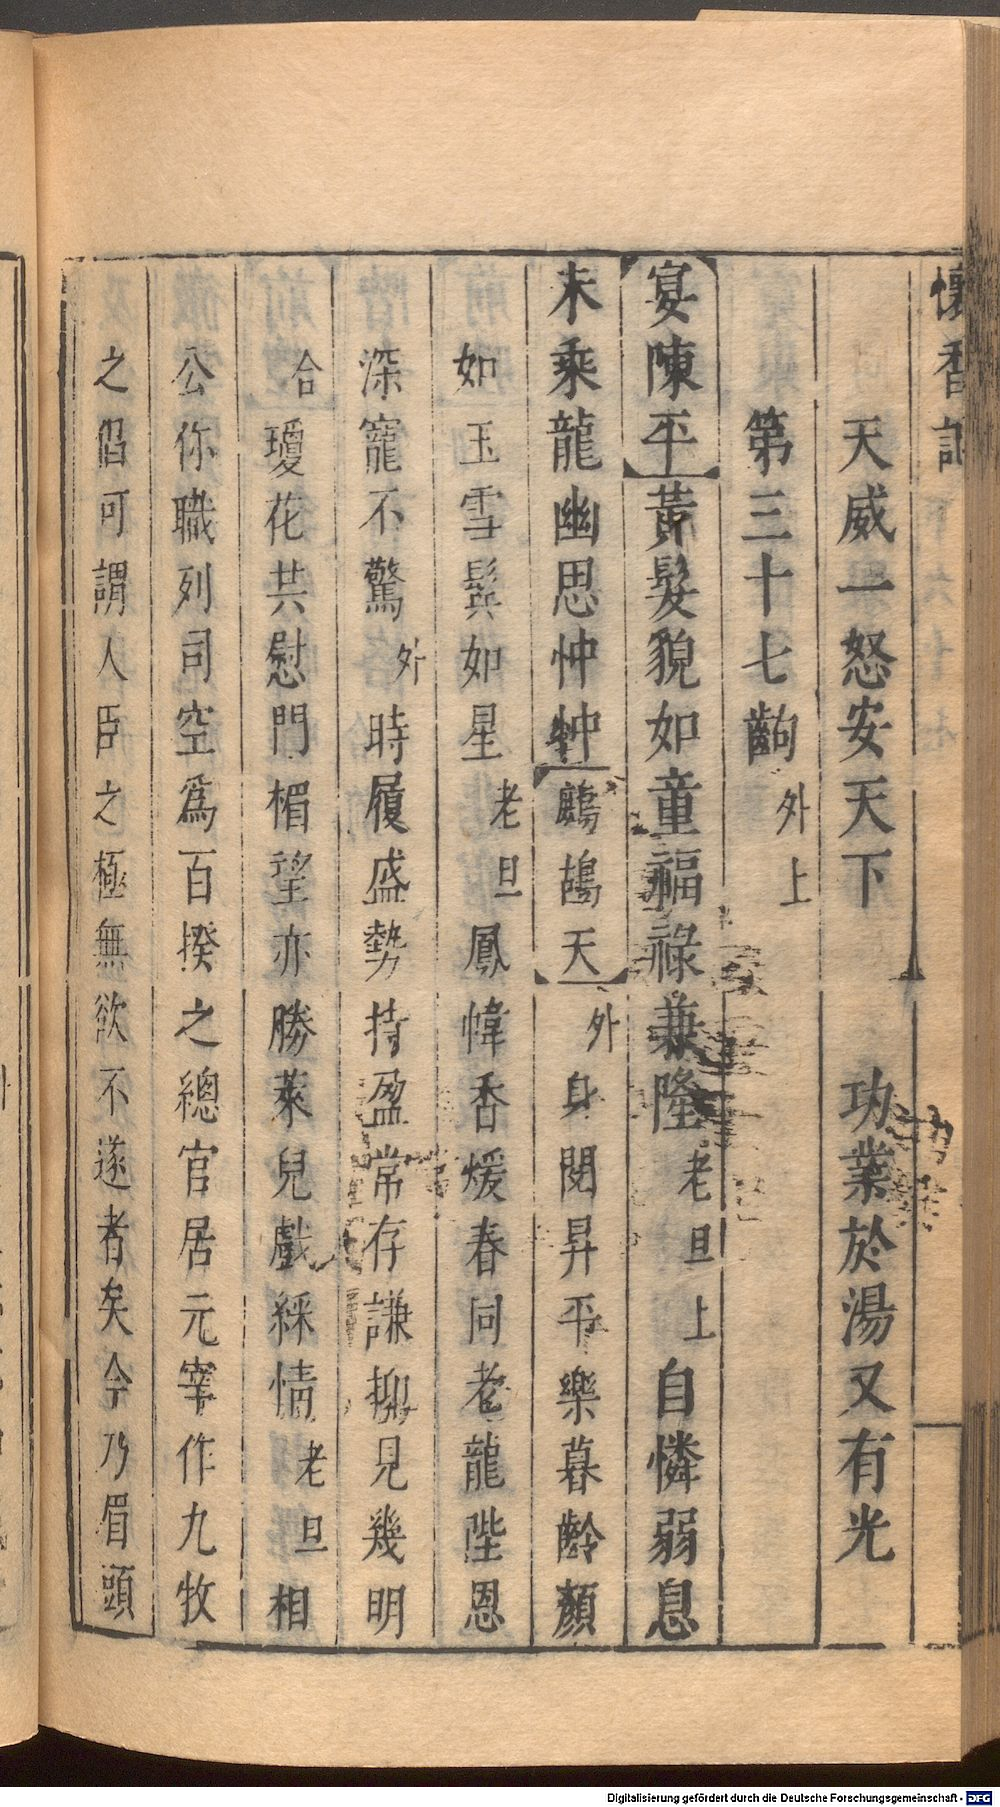 懷香記
天威一怒安天下　功業於湯又有光
第三十七齣　外上
【宴陳平】黃髮貌如童福祿兼隆　老旦上　自憐弱息
未乘龍幽思忡忡【鷓鴣天】　外　身閱昇平樂暮齡顏
如玉雪鬂如星　老旦　鳳幃香煖春同老龍陛恩
深寵不驚　外　時履盛勢持盈常存謙抑見幾明
合　瓊花共慰門楣望亦勝萊兒戲綵情　老旦　相
公你職列司空爲百揆之總官居元宰作九牧
之倡可謂人臣之極無欲不遂者矣今乃眉頭
Digitalisierung gefördert durch die Deutsche Forschungsgemeinschaft - DFG